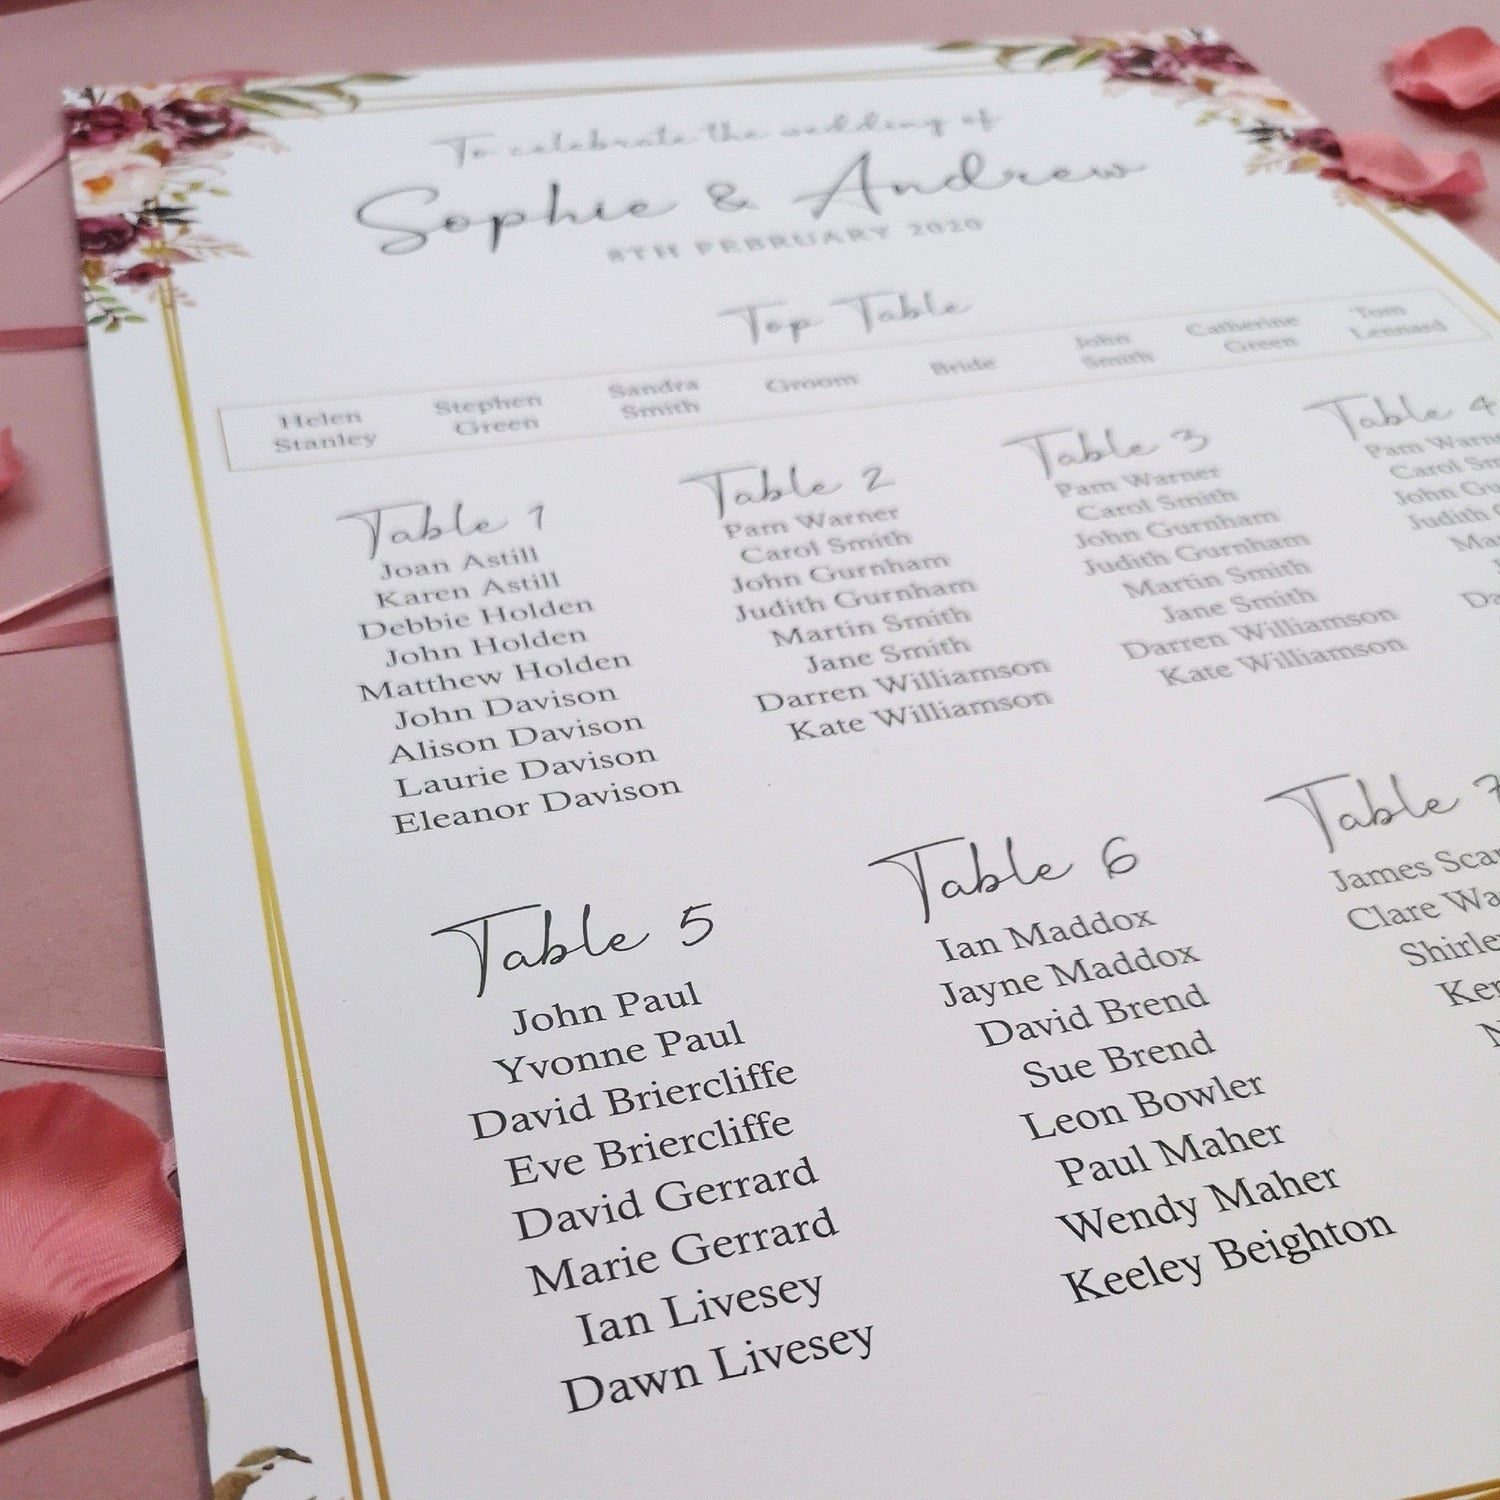 To celebrate the wedding of
Sophie & Andrew
8TH FEBRUARY 2020
Top Table
Helen
Stanley
Stephen
Green
Sandra
Smith
Groom
Bride
John
Smith
Catherine
Green
Tom
Lennard
Table 1
Joan Astill
Karen Astill
Debbie Holden
John Holden
Matthew Holden
John Davison
Alison Davison
Laurie Davison
Eleanor Davison
Table 2
Pam Warner
Carol Smith
John Gurnham
Judith Gurnham
Martin Smith
Jane Smith
Darren Williamson
Kate Williamson
Table 3
Pam Warner
Carol Smith
John Gurnham
Judith Gurnham
Martin Smith
Jane Smith
Darren Williamson
Kate Williamson
Table 4
Pam
Carol
John
Judith
Table 5
John Paul
Yvonne Paul
David Briercliffe
Eve Briercliffe
David Gerrard
Marie Gerrard
Ian Livesey
Dawn Livesey
Table 6
Ian Maddox
Jayne Maddox
David Brend
Sue Brend
Leon Bowler
Paul Maher
Wendy Maher
Keeley Beighton
Table 7
James
Clare